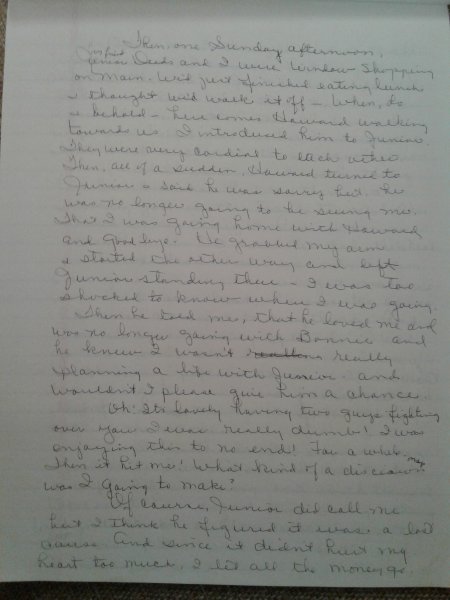 Then, one Sunday afternoon,
Junior Deeds and I were window shopping
on Main. We'd just finished eating lunch
& thought we'd walk it off - When, lo
& behold - here comes Howard walking
towards us. I introduced him to Junior.
They were very cordial to each other.
Then, all of a sudden, Howard turned to
Junior & said he was sorry but he
was no longer going to be seeing me.
That I was going home with Howard
and Good bye. He grabbed my arm
& started the other way and left
Junior standing there - I was too
shocked to know where I was going.
Then he told me, that he loved me and
was no longer going with Bonnie and
he knew I wasn't really
planning a life with Junior and
wouldn't I please give him a chance.
Oh! Its lovely having two guys fighting
over you. I was really dumb! I was
enjoying this to no end! For a while.
Then it hit me! What kind of a decision
was I going to make?
Of course, Junior did call me
but I think he figured it was a lost
cause. And since it didn't hurt my
heart too much, I let all the money go.